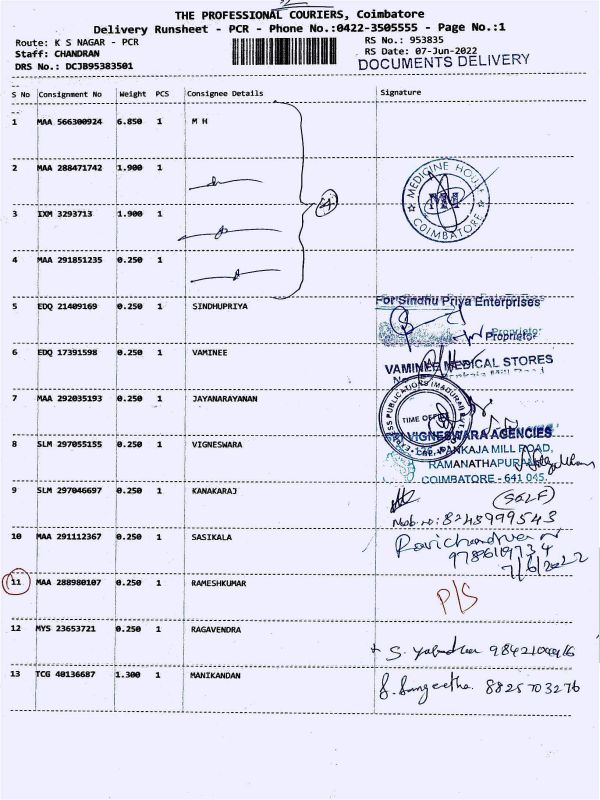 THE PROFESSIONAL COURIERS, Coimbatore
Delivery Runsheet - PCR - Phone No.:0422-3505555 - Page No.:1
Route: K S NAGAR - PCR
RS No.: 953835
Staff: CHANDRAN
RS Date: 07-Jun-2022
DRS No.: DCJB95383501
DOCUMENTS DELIVERY
S No Consignment No Weight PCS Consignee Details Signature
1 MAA 566300924 6.850 1 M H
2 MAA 288471742 1.900 1
MEDICINE HOUSE
MM
COIMBATORE
3 IXM 3293713 1.900 1
4
4 MAA 291851235 0.250 1
5 EDQ 21409169 0.250 1 SINDHUPRIYA
For Sindhu Priya Enterprises
Proprietor
Proprietor
6 EDQ 17391598 0.250 1 VAMINEE
VAMINEE MEDICAL STORES
7 MAA 292035193 0.250 1 JAYANARAYANAN
EXPRESS PUBLICATIONS (MADURAI)
TIME OFFICE
8 SLM 297055155 0.250 1 VIGNESWARA
SRI VIGNESWARA AGENCIES
PANKAJA MILL ROAD,
RAMANATHAPURAM,
COIMBATORE - 641 045.
9 SLM 297046697 0.250 1 KANAKARAJ
(SELF)
Mob.no: 8245999543
10 MAA 291112367 0.250 1 SASIKALA
Ravichandran
9786119734
7/6/2022
11 MAA 288980107 0.250 1 RAMESHKUMAR
P/S
12 MYS 23653721 0.250 1 RAGAVENDRA
13 TCG 40136687 1.300 1 MANIKANDAN
S. Sangeetha. 8825703276